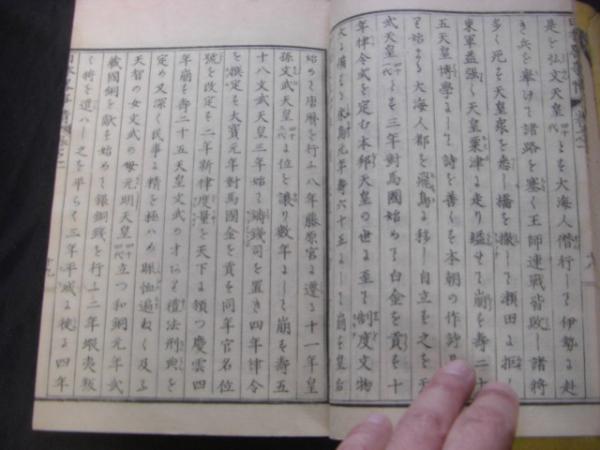 是を弘文天皇三十九代とを大海人僭行して伊勢に赴
き兵を挙けて諸路を塞く王師連戦皆敗し諸将
多く死を天皇衆を悉し橋を撤して瀬田に拒く
東軍益强く天皇粟津に走り縊せて崩を寿二十
五天皇博学にして詩を善くを本朝の作詩
を始め大海人都を飛鳥に移し自立を之を天
武天皇四十代とを三年対馬国始めて白金を貢を十
年律令式を定む本邦天皇の世に至て制度文物
大に備 朱鳥元年寿六十五にして崩を皇后
始めて唐暦を行ふ八年藤原宮に遷る十一年皇
孫文武天皇に位を譲り数年にして崩を寿五
十八文武天皇三年始て鋳銭司を置き四年律令
を撰定を大宝元年対馬国金を貢を同年官名位
号を改定を二年新律度量を天下に頒つ慶雲四
年崩を寿二十五天皇文武の才 法刑典を
定め又深く民事に精を極め賑恤遍ねく及ふ
天智の女文武の母元明天皇立つ和銅元年武
蔵国銅を献を始めて銀銅銭を行ふ二年蝦夷叛
く将を遣 之を平らく三年平城に徙る四年